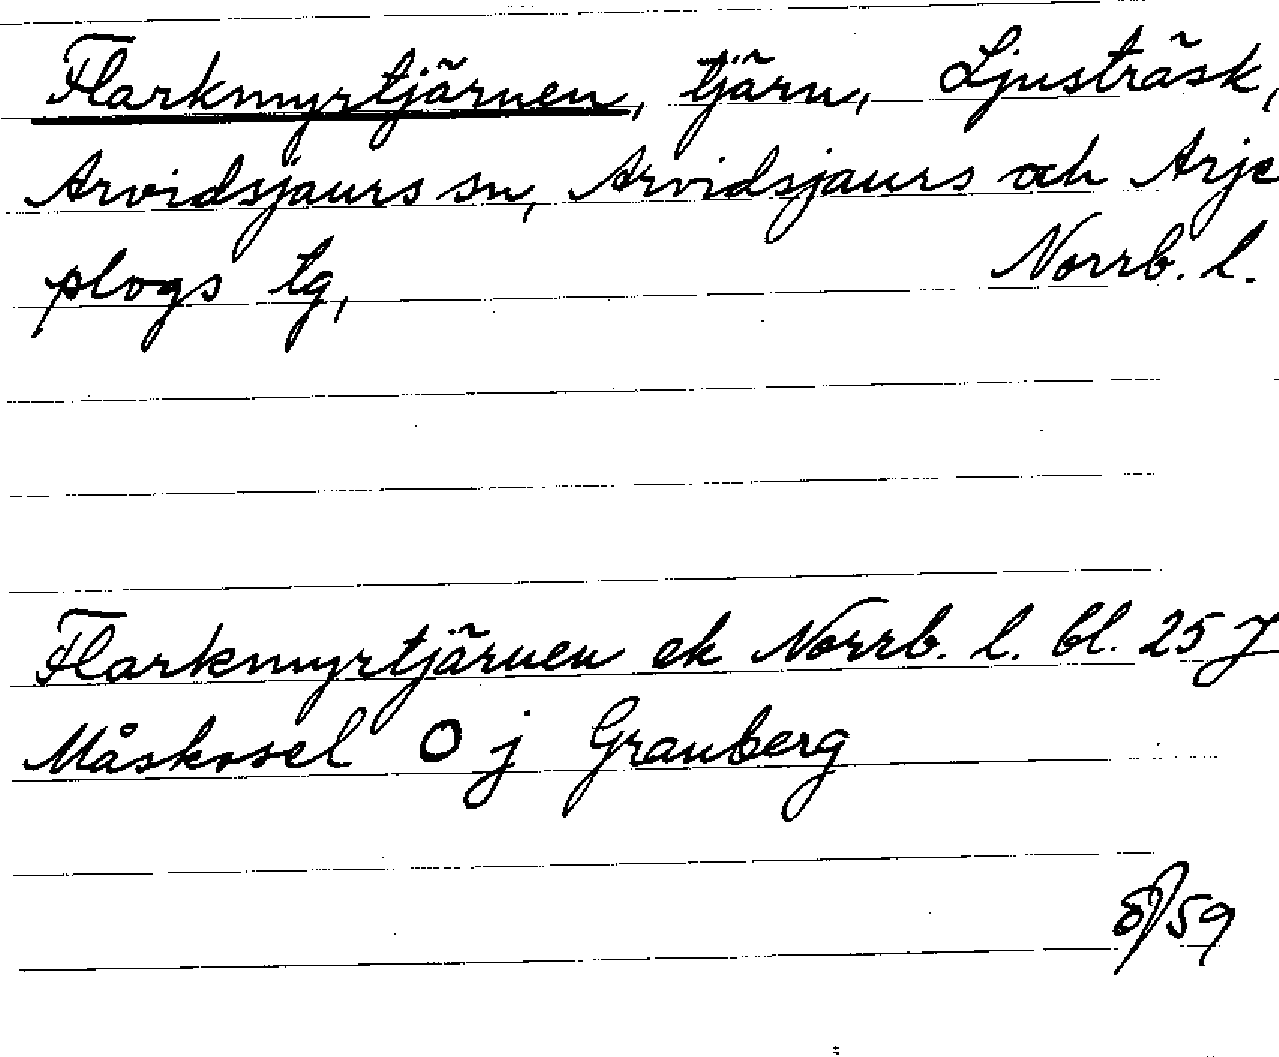 Flarkmyrtjärnen, tjärn, Ljusträsk,
Arvidsjaurs sn, Arvidsjaurs och Arje
plogs tg, Norrb. l.
Flarkmyrtjärnen ek Norrb. l. bl. 25 J
Måskosel O j Granberg
8/59